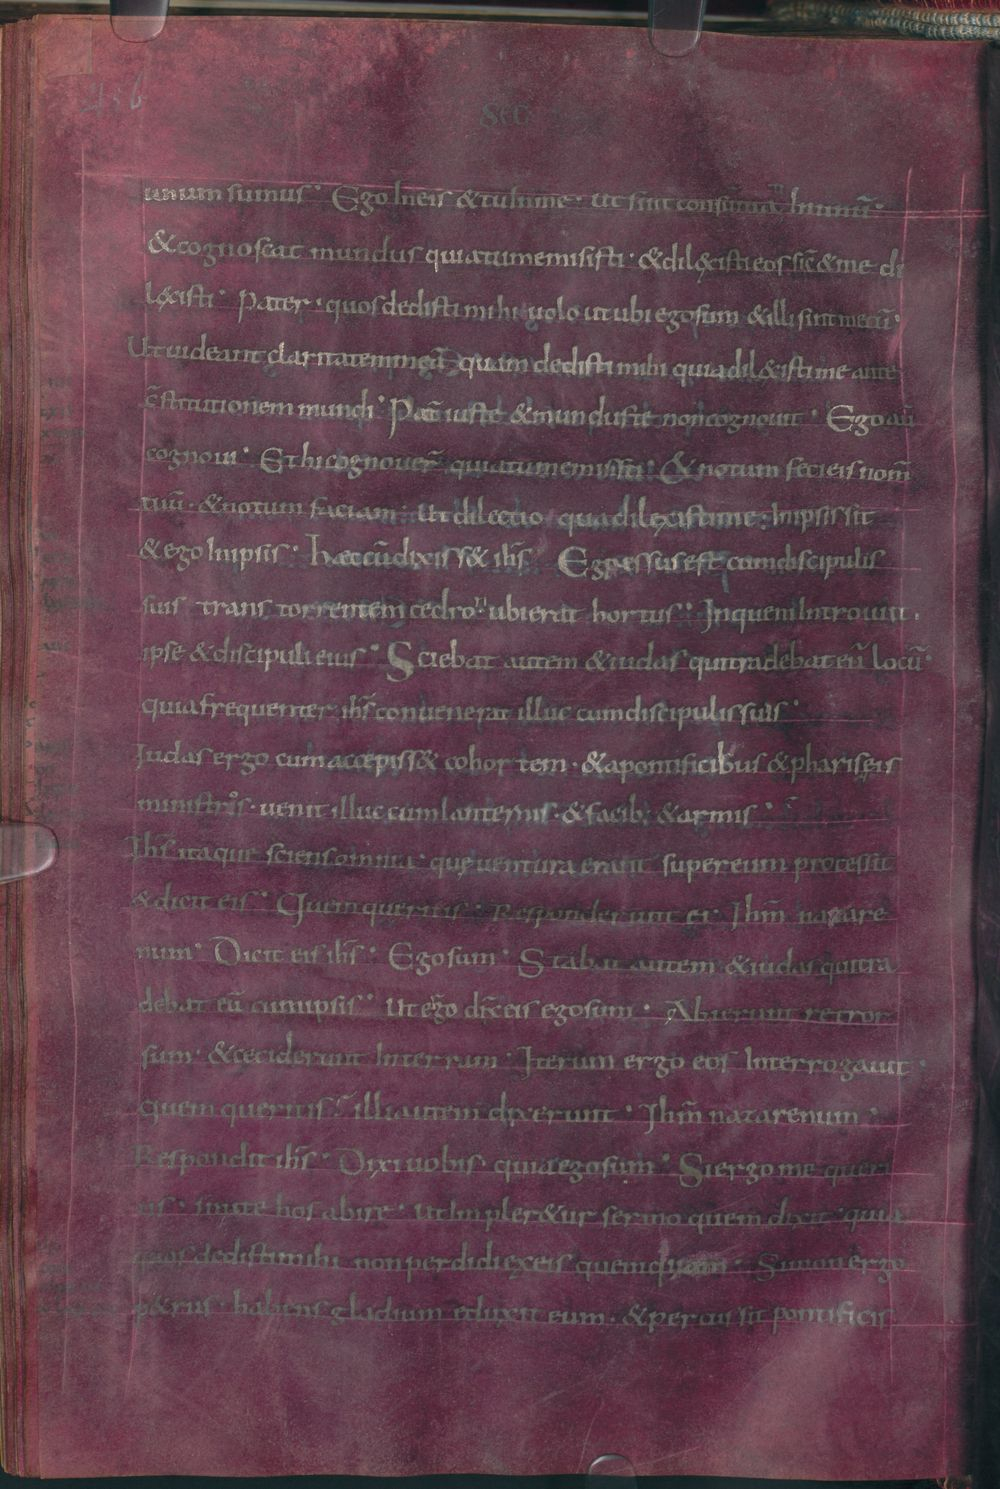 436
sec
unum sumus· Ego In eis & tu In me· ut sint consum̄ati In unū·
& cognoscat mundus quia tu me misisti· & dilexisti eos sic̄ & me di
lexisti· Pater· quos dedisti mihi uolo ut ubi ego sum & illi sint mecū·
Ut uideant claritatem meā quam dedisti mihi quia dilexisti me ante
c̄stitutionem mundi· Pat̄ iuste & mundus te non cognouit· Ego aū
cognoui· Et hi cognouer̄ quia tu me misisti· & notum feci eis nom̄
tuū· & notum faciam· Ut dilectio qua dilexisti me· In ipsis sit
& ego In ipsis· haec cū dixiss& ihs̄ Egressus est cum discipulis
suis trans torrentem cedron ubi erat hortus· In quem Introiuit·
ipse & discipuli eius· Sciebat autem & iudas qui tradebat eū locū·
quia frequenter ihs̄ conuenerat illuc cum discipulis suis·
Judas ergo cum accepiss& cohortem· & a pontificibus & phariseis
ministros· uenit illuc cum lanternis· & facib; & armis·
Ihs̄ itaque sciens omnia· quę uentura erant super eum processit
& dicit eis· Quem queritis· Responderunt ei· Ihm̄ nazare
num· Dicit eis ihs̄· Ego sum· Stabat autem & iudas qui tra
debat eū cum ipsis· Ut ergo dix̄ eis ego sum· Abierunt retror
sum· & ceciderunt In terram· Iterum ergo eos Interrogauit·
quem queritis· illi autem dixerunt· Ihm̄ nazarenum·
Respondit ihs̄· Dixi uobis quia ego sum· Si ergo me queri
tis· sinite hos abire· Ut Impler&ur sermo quem dixit· quia
quos dedisti mihi non perdidi ex eis quemquam· Simon ergo
p&rus· habens gladium eduxit eum· & percussit pontificis